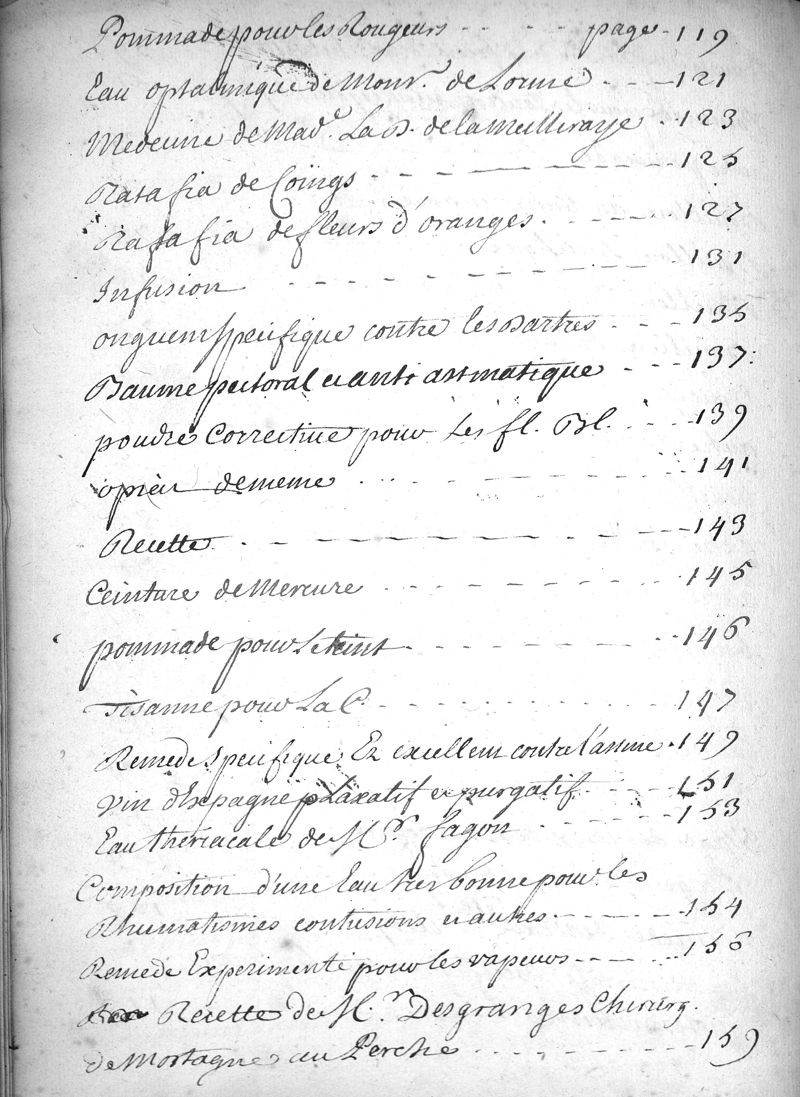 Pommade pour les Rougeurs - - - page - 119
Eau optalmique de Monr. de Lorme - - - 121
Medecine de Made. La D. de la Meilleraye - 123
Ratafia de Coings - - - - - - 125
Ratafia de fleurs d'oranges - - - - 127
Infusion - - - - - - - 131
onguent specifique contre les Dartres - - - 135
Baume pectoral et anti asmatique - - - 137
poudre Corrective pour Les fl. Bl. - - - 139
opiat de meme - - - - - - 141
Recette - - - - - - - 143
Ceinture de Mercure - - - - - - 145
pommade pour Le teint - - - - - 146
Tisanne pour La P. - - - - - - 147
Remede specifique Et excellent contre l'asme - 149
vin d'Espagne Laxatif et purgatif - - 151
Eau theriacale de Mr. fagon - - - 153
Composition d'une Eau tres bonne pour les
Rhumatismes contusions et autres - - - - 154
Remede Experimenté pour les vapeurs - - - 156
Recette de Mr. Desgranges Chirurg.
de Mortagne au Perche - - - - - 159